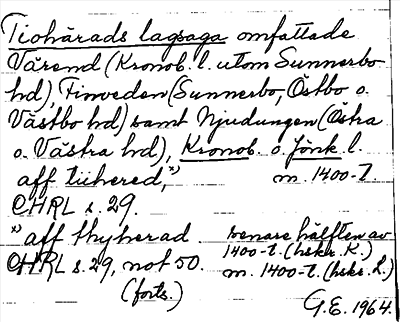 Tiohärads lagsaga omfattade
Värend (Kronob. l. utom Sunnerbo
hd), Finveden (Sunnerbo, Östbo o.
Västbo hd) samt Njudungen (Östra
o. Västra hd), Kronob. o. Jönk. l.
aff tiihered, *) m. 1400-t.
CHRL s. 29.
*) aff thyherad. senare hälften av
1400-t. (hskr. K.)
CHRL s. 29, not 50. m. 1400-t. (hskr. L.)
(forts.)
G.E. 1964.